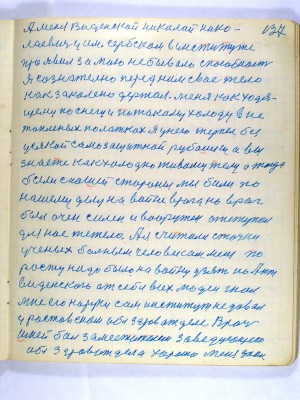 137
А меня Виденской Николай Нико-
лаевич, и им. Сербском в институте
проявил за мною небывало способност
Я сознательно перед ним свое тело
как закалено держал. меня как ходя-
щему по снегу и по такому холоду в не
топленых палатках Я умею терпеть без
всякой самозащитной рубашки а вы
знаете как холодно живому телу а тогда
были с нашей стороны мы били по
нашему делу на войне врага но враг
был очен силен и вооружен
для нас тяжело, А я считали сточки
ученых больным человеком меня по
росту надо было на войну взять но
Виденского от себя всех людей гнал
мне его на руки сам институт не давал
у ростовском обл здравотделе Врач
был заместителем Заведующего
обл Здравотдела хорошо меня знал